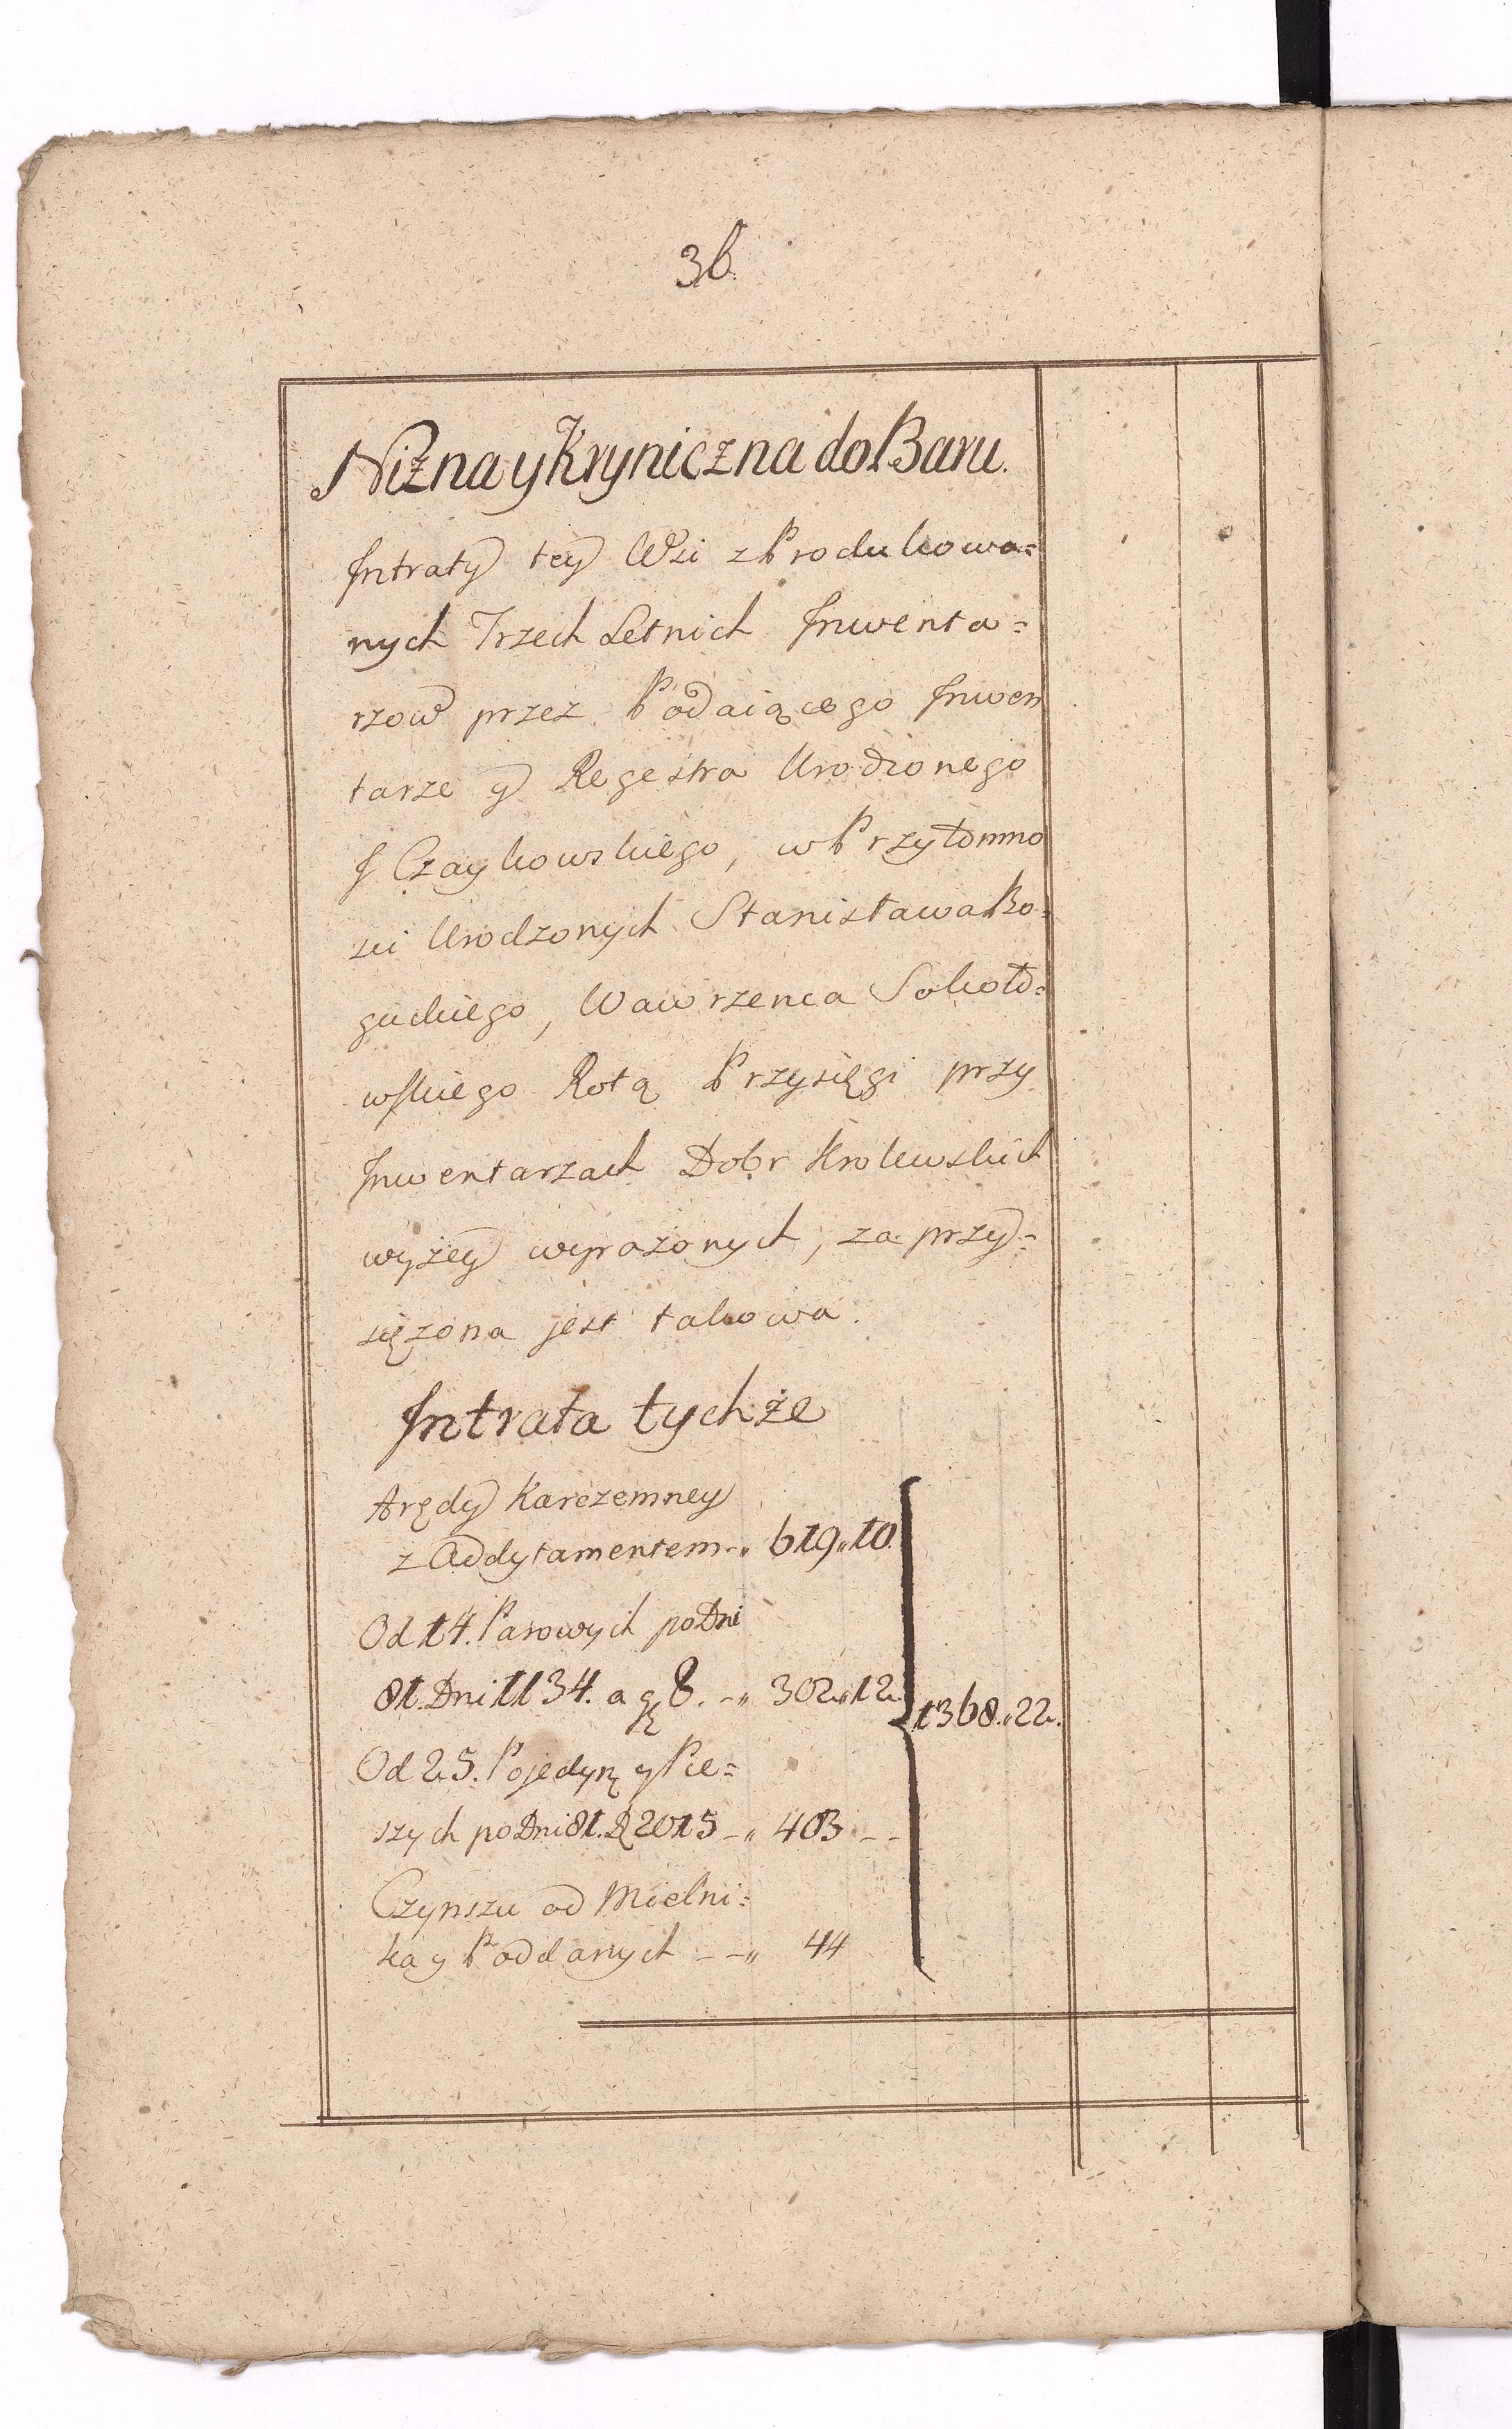 36.
Niżna y Kryniczna do Baru.
Intraty tey Wsi z Produkowa=
nych Trzech Letnich Inwenta=
rzow przez Podaiącego Inwen
tarze y Regestra Urodzonego
J Czaykowskiego, w Przytomno
sci Urodzonych Stanisława Bo=
guckiego, Wawrzenca Sokoło=
wskiego Rotą Przysięgi przy
Inwentarzach Dobr Krolewskich
wyżey wyrażonych, za przy=
siężona jest takowa.
Intrata tychże
Arędy Karczemney
z Addytamentem -„ 619„10.
Od 14. Parowych po Dni
81. Dni 1134. a g 8. -„ 302„12.
1368„22.
Od 25. Pojedyną y Pie=
szych po Dni 81. D 2015 -„ 403 - -
Czynszu od Mielni=
ka y Poddanych - -„ 44